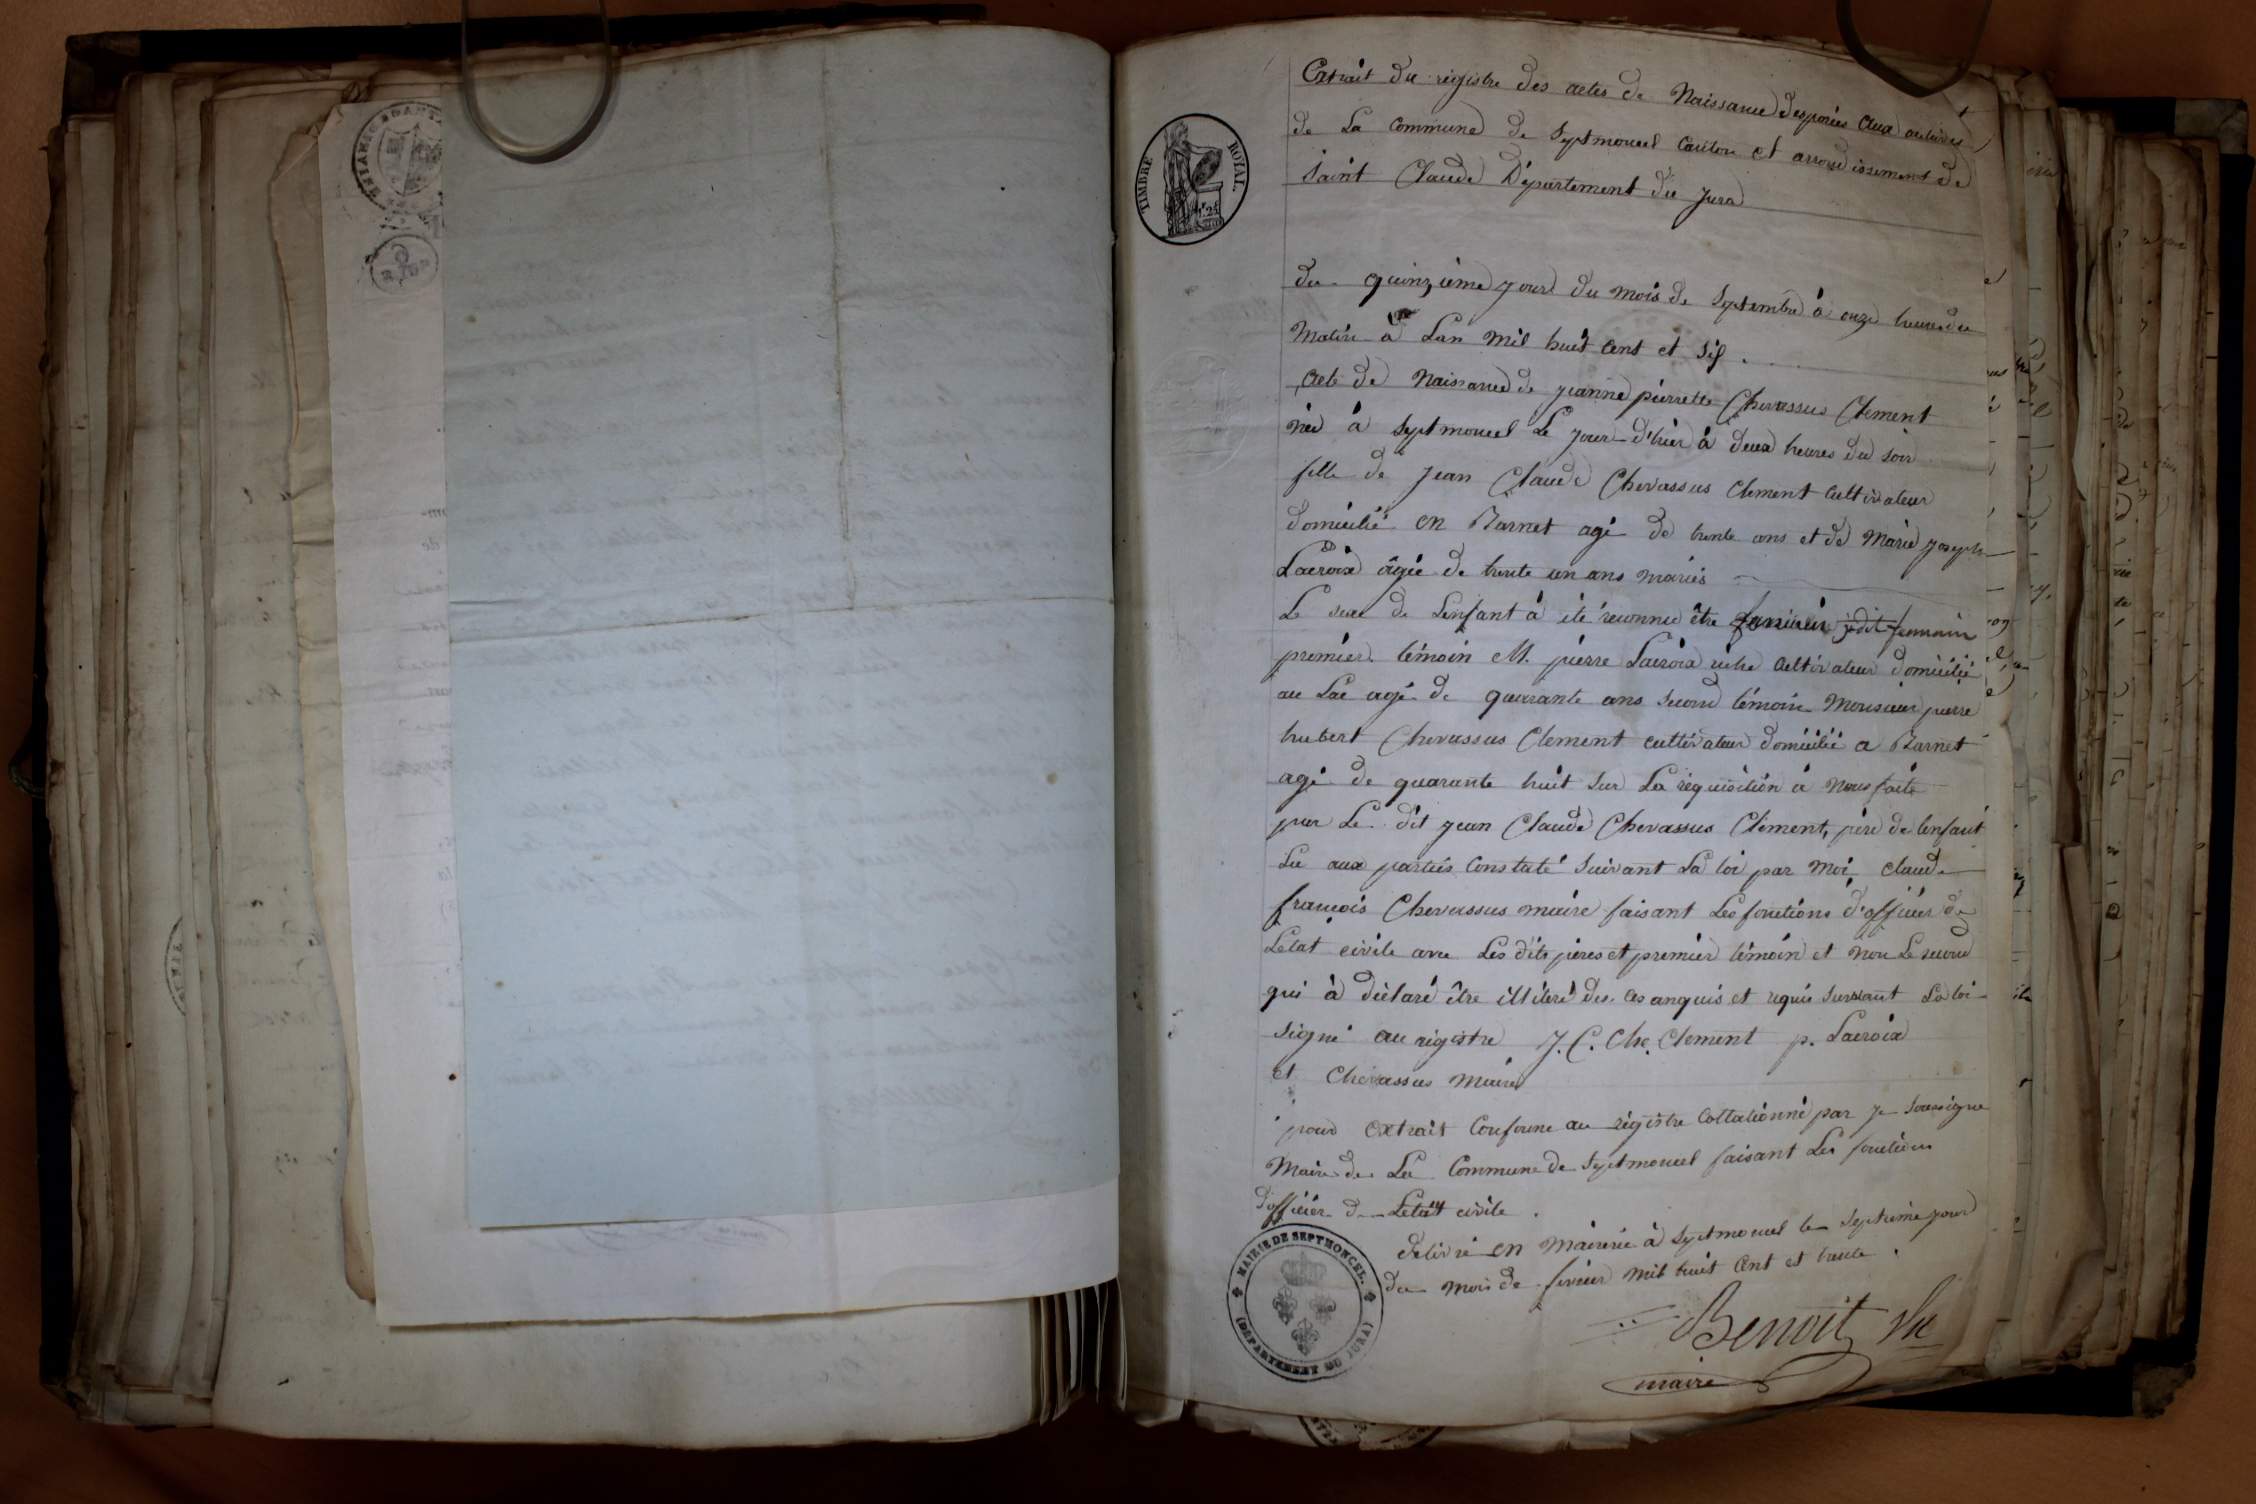 Extrait du régistre des actes de Naissance desposées aux archives
de La Commune de Septmoncel Canton et arrondissement de
Saint Claude Département du Jura
TIMBRE ROYAL.
du quinzième jour du mois de Septembre à onze heures du
Matin à Lan mil huit cent et six.
Acte de Naissance de jeanne pierrette Chevassus Clement
née à Septmoncel Le jour d'hier à deux heures du soir
fille de Jean Claude Chevassus Clement cultivateur
domicilié en Barnet agé de trente ans et de Marie Joseph
Lacroix âgée de trente un ans mariés
Le sexe de Lenfant à été reconnu être feminin
premier témoin M. pierre Lacroix cultivateur domicilié
au Lac agé de quarante ans second témoin Monsieur pierre
hubert Chevassus Clement cultivateur domicilié a Barnet
agé de quarante huit sur La réquisition à nous faite
par Le dit jean Claude Chevassus Clément, père de lenfant
Lu aux parties Constaté suivant La loi par moi Claude
françois Chevassus maire faisant Les fonctions d'officier de
Letat civile avec Les dits pères et premier témoin et non Le second
qui à déclaré être illiteré de ces enquis et requis suivant La loi
signé au régistre J. C. Che. Clement p. Lacroix
et Chevassus Maire
pour extrait Conforme au régistre Collationné par je soussigné
Maire de La Commune de Septmoncel faisant Les fonctions
d'officier de Letat civile.
délivré en Mairerie à Septmoncel le septieme jour
du mois de fevrier mil huit Cent et trente.
Benoit
maire
MAIRIE DE SEPTMONCEL.
(DÉPARTEMENT DU JURA)